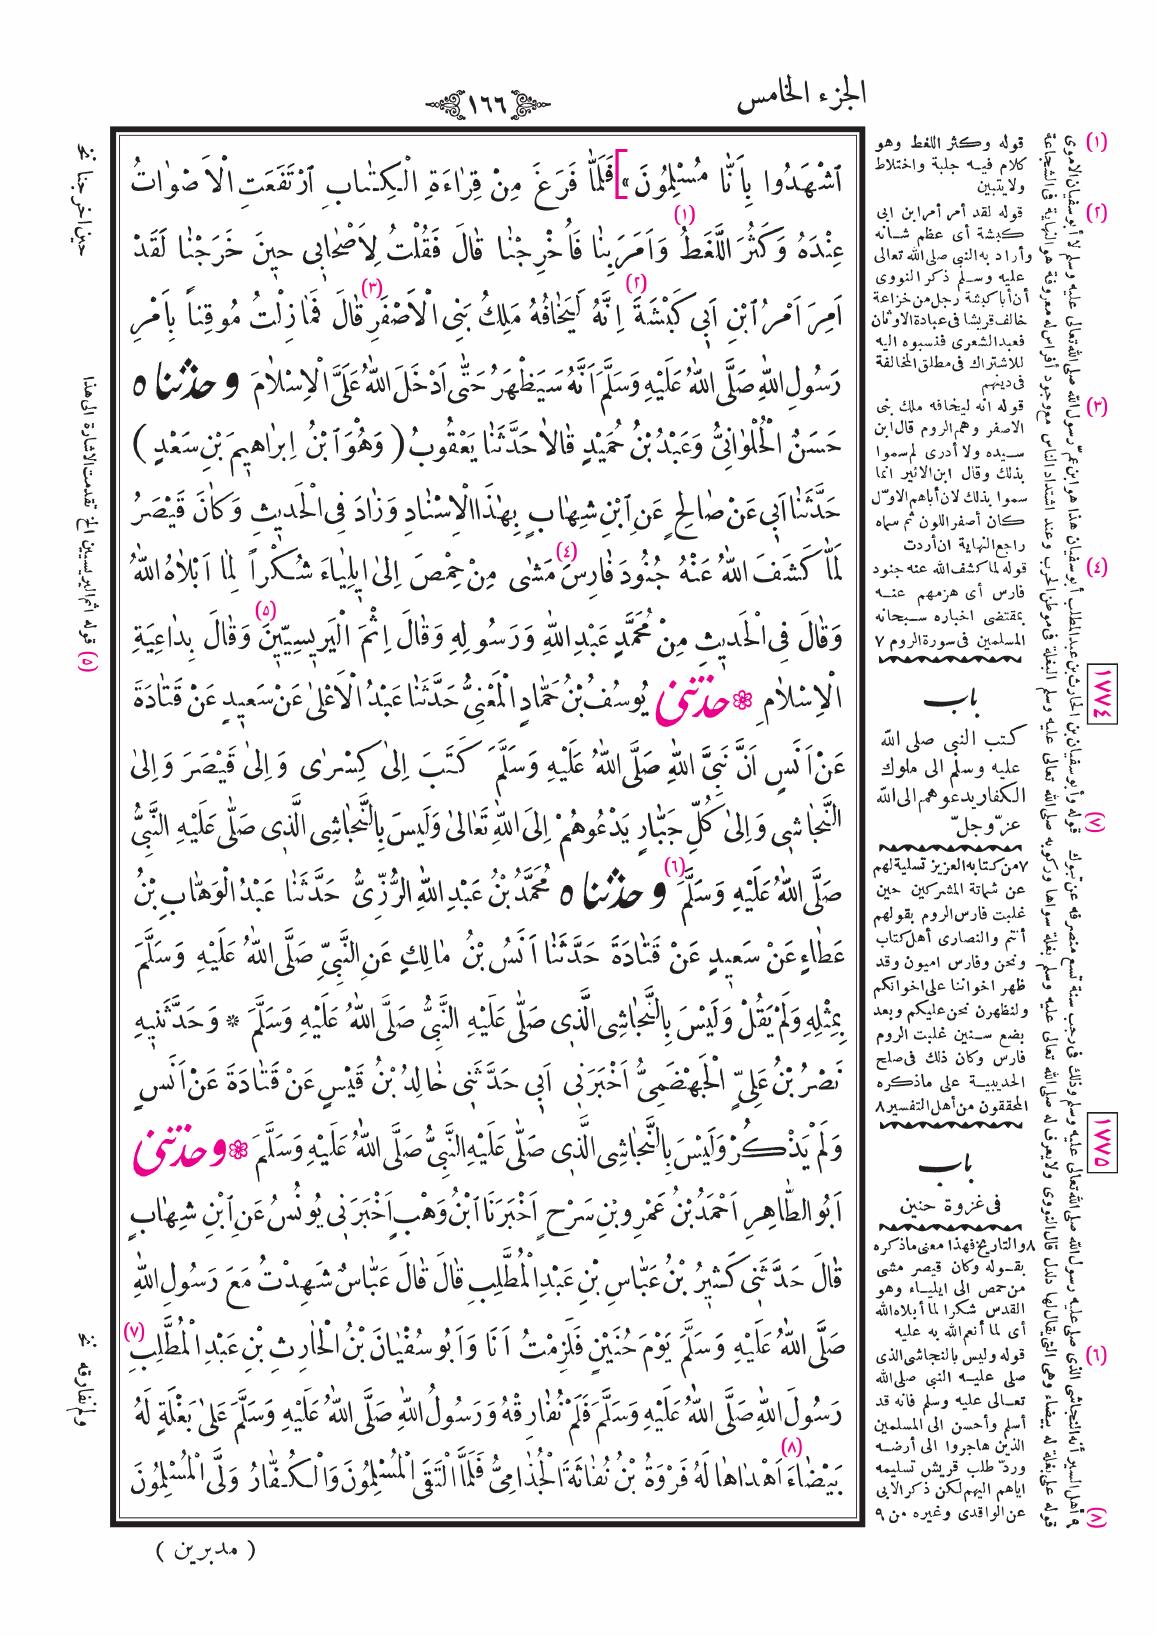 الجزء الخامس
١٦٦
ٱشْهَدُوا بِأَنَّا مُسْلِمُونَ» فَلَمَّا فَرَغَ مِنْ قِرَاءَةِ الْكِتَابِ ٱرْتَفَعَتِ الْأَصْوَاتُ
عِنْدَهُ وَكَثُرَ اللَّغَطُ (١) وَأَمَرَ بِنَا فَأُخْرِجْنَا قَالَ فَقُلْتُ لِأَصْحَابِي حِينَ خَرَجْنَا لَقَدْ
أَمِرَ أَمْرُ ٱبْنِ أَبِي كَبْشَةَ (٢) إِنَّهُ لَيَخَافُهُ مَلِكُ بَنِي الْأَصْفَرِ (٣) قَالَ فَمَا زِلْتُ مُوقِنًا بِأَمْرِ
رَسُولِ اللّٰهِ صَلَّى اللّٰهُ عَلَيْهِ وَسَلَّمَ أَنَّهُ سَيَظْهَرُ حَتَّى أَدْخَلَ اللّٰهُ عَلَيَّ الْإِسْلَامَ وحدثنا ٥
حَسَنٌ الْحُلْوَانِيُّ وَعَبْدُ بْنُ حُمَيْدٍ قَالَا حَدَّثَنَا يَعْقُوبُ (وَهُوَ ٱبْنُ إِبْرَاهِيمَ بْنِ سَعْدٍ)
حَدَّثَنَا أَبِي عَنْ صَالِحٍ عَنِ ٱبْنِ شِهَابٍ بِهٰذَا الْإِسْنَادِ وَزَادَ فِي الْحَدِيثِ وَكَانَ قَيْصَرُ
لَمَّا كَشَفَ اللّٰهُ عَنْهُ جُنُودَ فَارِسَ (٤) مَشَى مِنْ حِمْصَ إِلَى إِيلِيَاءَ شُكْرًا لِمَا أَبْلَاهُ اللّٰهُ
وَقَالَ فِي الْحَدِيثِ مِنْ مُحَمَّدٍ عَبْدِ اللّٰهِ وَرَسُولِهِ وَقَالَ إِثْمَ الْيَرِيسِيِّينَ (٥) وَقَالَ بِدَاعِيَةِ
الْإِسْلَامِ ❁ حدثنى يُوسُفُ بْنُ حَمَّادٍ الْمَعْنِيُّ حَدَّثَنَا عَبْدُ الْأَعْلَى عَنْ سَعِيدٍ عَنْ قَتَادَةَ
عَنْ أَنَسٍ أَنَّ نَبِيَّ اللّٰهِ صَلَّى اللّٰهُ عَلَيْهِ وَسَلَّمَ كَتَبَ إِلَى كِسْرَى وَإِلَى قَيْصَرَ وَإِلَى
النَّجَاشِي وَإِلَى كُلِّ جَبَّارٍ يَدْعُوهُمْ إِلَى اللّٰهِ تَعَالَى وَلَيْسَ بِالنَّجَاشِي الَّذِي صَلَّى عَلَيْهِ النَّبِيُّ
صَلَّى اللّٰهُ عَلَيْهِ وَسَلَّمَ (٦) وحدثنا ٥ مُحَمَّدُ بْنُ عَبْدِ اللّٰهِ الرُّزِّيُّ حَدَّثَنَا عَبْدُ الْوَهَّابِ بْنُ
عَطَاءٍ عَنْ سَعِيدٍ عَنْ قَتَادَةَ حَدَّثَنَا أَنَسُ بْنُ مَالِكٍ عَنِ النَّبِيِّ صَلَّى اللّٰهُ عَلَيْهِ وَسَلَّمَ
بِمِثْلِهِ وَلَمْ يَقُلْ وَلَيْسَ بِالنَّجَاشِي الَّذِي صَلَّى عَلَيْهِ النَّبِيُّ صَلَّى اللّٰهُ عَلَيْهِ وَسَلَّمَ * وَحَدَّثَنِيهِ
نَصْرُ بْنُ عَلِيٍّ الْجَهْضَمِيُّ أَخْبَرَنِي أَبِي حَدَّثَنِي خَالِدُ بْنُ قَيْسٍ عَنْ قَتَادَةَ عَنْ أَنَسٍ
وَلَمْ يَذْكُرْ وَلَيْسَ بِالنَّجَاشِي الَّذِي صَلَّى عَلَيْهِ النَّبِيُّ صَلَّى اللّٰهُ عَلَيْهِ وَسَلَّمَ ❁ وحدثنى
أَبُو الطَّاهِرِ أَحْمَدُ بْنُ عَمْرِو بْنِ سَرْحٍ أَخْبَرَنَا ٱبْنُ وَهْبٍ أَخْبَرَنِي يُونُسُ عَنِ ٱبْنِ شِهَابٍ
قَالَ حَدَّثَنِي كَثِيرُ بْنُ عَبَّاسِ بْنِ عَبْدِ الْمُطَّلِبِ قَالَ قَالَ عَبَّاسٌ شَهِدْتُ مَعَ رَسُولِ اللّٰهِ
صَلَّى اللّٰهُ عَلَيْهِ وَسَلَّمَ يَوْمَ حُنَيْنٍ فَلَزِمْتُ أَنَا وَأَبُو سُفْيَانَ بْنُ الْحَارِثِ بْنِ عَبْدِ الْمُطَّلِبِ (٧)
رَسُولَ اللّٰهِ صَلَّى اللّٰهُ عَلَيْهِ وَسَلَّمَ فَلَمْ نُفَارِقْهُ وَرَسُولُ اللّٰهِ صَلَّى اللّٰهُ عَلَيْهِ وَسَلَّمَ عَلَى بَغْلَةٍ لَهُ
بَيْضَاءَ (٨) أَهْدَاهَا لَهُ فَرْوَةُ بْنُ نُفَاثَةَ الْجُذَامِيُّ فَلَمَّا الْتَقَى الْمُسْلِمُونَ وَالْكُفَّارُ وَلَّى الْمُسْلِمُونَ
( مدبرين )
(١) قوله وكثر اللغط وهو
كلام فيه جلبة واختلاط
ولايتبين
(٢) قوله لقد أمر أمر ابن ابى
كبشة أى عظم شانه
وأراد به النبى صلى الله تعالى
عليه وسلم ذكر النووى
أن أبا كبشة رجل من خزاعة
خالف قريشا فى عبادة الاوثان
فعبد الشعرى فنسبوه اليه
للاشتراك فى مطلق المخالفة
فى دينهم
(٣) قوله انه ليخافه ملك بنى
الاصفر وهم الروم قال ابن
سيده ولا أدرى لم سموا
بذلك وقال ابن الاثير انما
سموا بذلك لان أباهم الاوّل
كان أصفر اللون ثم سماه
راجع النهاية ان أردت
(٤) قوله لما كشف الله عنه جنود
فارس أى هزمهم عنه
بمقتضى اخباره سبحانه
المسلمين فى سورة الروم ٧
١٧٧٤
باب
كتب النبى صلى الله
عليه وسلم الى ملوك
الكفار يدعوهم الى الله
عزّ وجلّ
٧ من كتابه العزيز تسلية لهم
عن شماتة المشركين حين
غلبت فارس الروم بقولهم
أنتم والنصارى أهل كتاب
ونحن وفارس اميون وقد
ظهر اخواننا على اخوانكم
ولنظهرن نحن عليكم وبعد
بضع سنين غلبت الروم
فارس وكان ذلك فى صلح
الحديبية على ماذكره
المحققون من أهل التفسير ٨
١٧٧٥
باب
فى غزوة حنين
٨ والتاريخ فهذا معنى ماذكره
بقوله وكان قيصر مشى
من حمص الى ايلياء وهو
القدس شكرا لما أبلاه الله
أى لما أنعم الله به عليه
(٦) قوله وليس بالنجاشى الذى
صلى عليه النبى صلى الله
تعالى عليه وسلم فانه قد
أسلم وأحسن الى المسلمين
الذين هاجروا الى أرضه
وردّ طلب قريش تسليمه
اياهم اليهم لكن ذكر الابى
عن الواقدى وغيره من ٩
٩ أهل السير أنه النجاشى الذى صلى عليه رسول الله صلى الله تعالى عليه وسلم وذلك فى رجب سنة تسع منصرفه عن تبوك (٧) قوله وأبو سفيان بن الحارث بن عبد المطلب أبو سفيان هذا هو ابن عمّ رسول الله صلى الله تعالى عليه وسلم لا أبو سفيان الاموى
(٨) قوله على بغلة له بيضاء وهى التى يقال لها دلدل قال النووى ولا يعرف له صلى الله تعالى عليه وسلم بغلة سواها وركوبه صلى الله تعالى عليه وسلم البغلة فى موطن الحرب وعند اشتداد الناس مع وجود أفراس له معروفة هو النهاية فى الشجاعة
حين اخرجنا نخ
(٥) قوله اثم اليريسيين الخ تقدمت الاشارة الى هذا
ولم نفارقه نخ